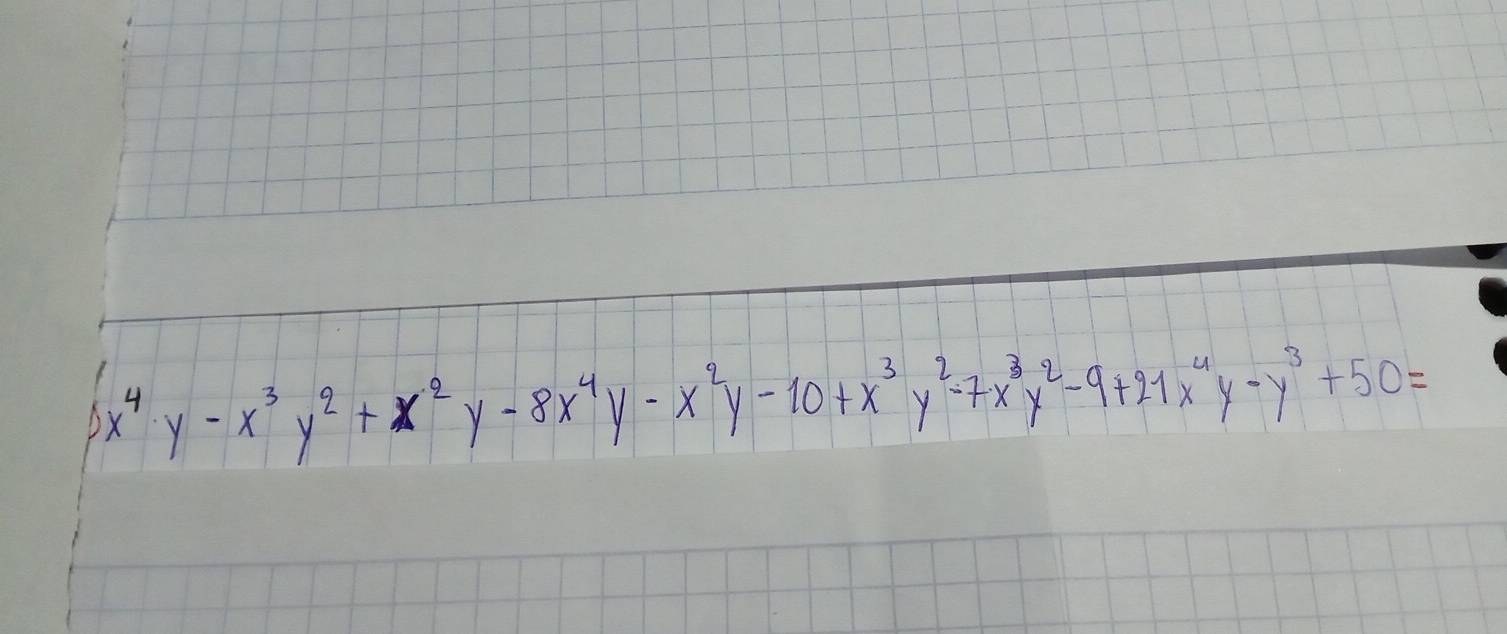 x⁴·y - x³y² + x²y - 8x⁴y - x²y - 10 + x³y² - 7x³y² - 9 + 21x⁴y - y³ + 50 =